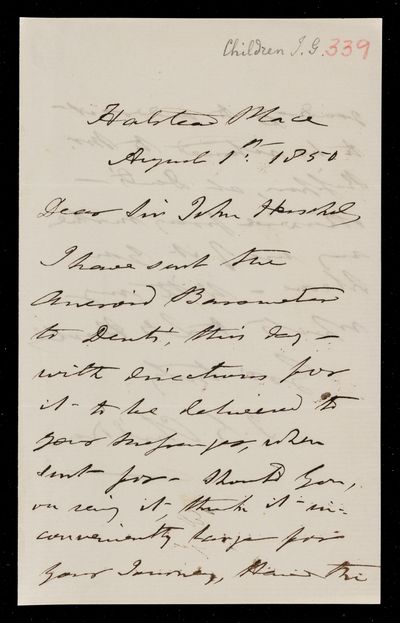 Children J. G. 339
Halstead Place
August 1st. 1850
Dear Sir John Herschel,
I have sent the
Aneroid Barometer
to Dents', this day –
with directions for
it - to be delivered to
your messenger, when
sent for - Should you,
on seeing it, think it in-
conveniently large for
your Journey, Have the